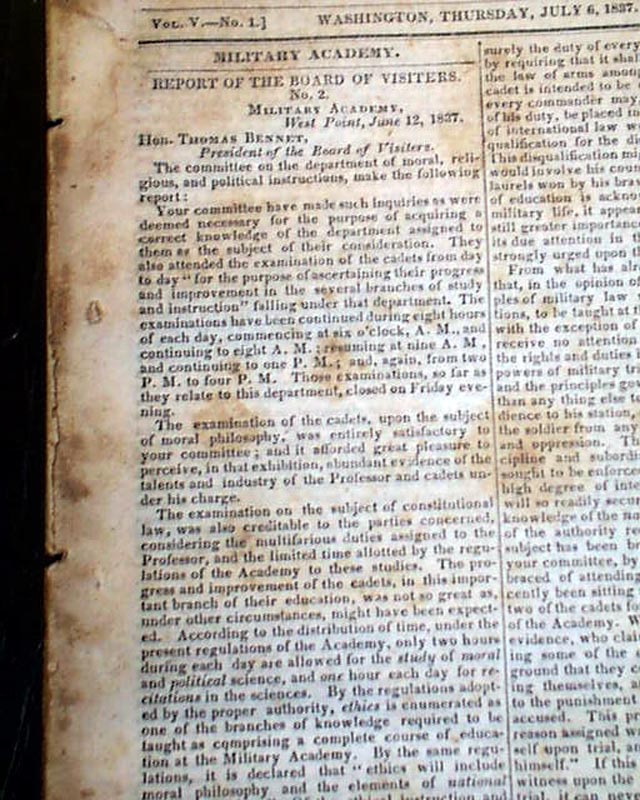 Vol. V.—No. 1.] WASHINGTON, THURSDAY, JULY 6, 1837.
MILITARY ACADEMY.
REPORT OF THE BOARD OF VISITERS.
No. 2.
Military Academy,
West Point, June 12, 1837.
Hon. Thomas Bennet,
President of the Board of Visiters.
The committee on the department of moral, reli-
gious, and political instructions, make the following
report:
Your committee have made such inquiries as were
deemed necessary for the purpose of acquiring a
correct knowledge of the department assigned to
them as the subject of their consideration. They
also attended the examination of the cadets from day
to day "for the purpose of ascertaining their progress
and improvement in the several branches of study
and instruction" falling under that department. The
examinations have been continued during eight hours
of each day, commencing at six o'clock, A. M., and
continuing to eight A. M.; resuming at nine A. M.
and continuing to one P. M.; and, again, from two
P. M. to four P. M. Those examinations, so far as
they relate to this department, closed on Friday eve-
ning.
The examination of the cadets, upon the subject
of moral philosophy, was entirely satisfactory to
your committee; and it afforded great pleasure to
perceive, in that exhibition, abundant evidence of the
talents and industry of the Professor and cadets un-
der his charge.
The examination on the subject of constitutional
law, was also creditable to the parties concerned,
considering the multifarious duties assigned to the
Professor, and the limited time allotted by the regu-
lations of the Academy to these studies. The pro-
gress and improvement of the cadets, in this impor-
tant branch of their education, was not so great as,
under other circumstances, might have been expect-
ed. According to the distribution of time, under the
present regulations of the Academy, only two hours
during each day are allowed for the study of moral
and political science, and one hour each day for re-
citations in the sciences. By the regulations adopt-
ed by the proper authority, ethics is enumerated as
one of the branches of knowledge required to be
taught as comprising a complete course of educa-
tion at the Military Academy. By the same regu-
lations, it is declared that "ethics will include
moral philosophy and the elements of national
surely the duty of every
by requiring that it shall
the law of arms among
cadet is intended to be
every commander may
of his duty, be placed in
of international law w
qualification for the di
This disqualification mi
would involve his coun
laurels won by his brav
of education is acknow
military life, it appears
still greater importance
its due attention in t
strongly urged upon th
From what has alr
that, in the opinion of
ples of military law
tions, to be taught at th
with the exception of
receive no attention
the rights and duties
powers of military tri
and the principles go
than any thing else to
dience to his station,
the soldier from any
and oppression. Th
cipline and subordi
sought to be enforce
high degree of inte
will so readily secur
knowledge of the na
of the authority re
subject has been br
your committee, by
braced of attending
cently been sitting
two of the cadets fo
of the Academy. W
evidence, who clai
ing some of the
ground that they
ing themselves, a
to the punishment
accused. This p
reason assigned w
self upon trial, an
himself." If this
witness upon the
trial, it can never